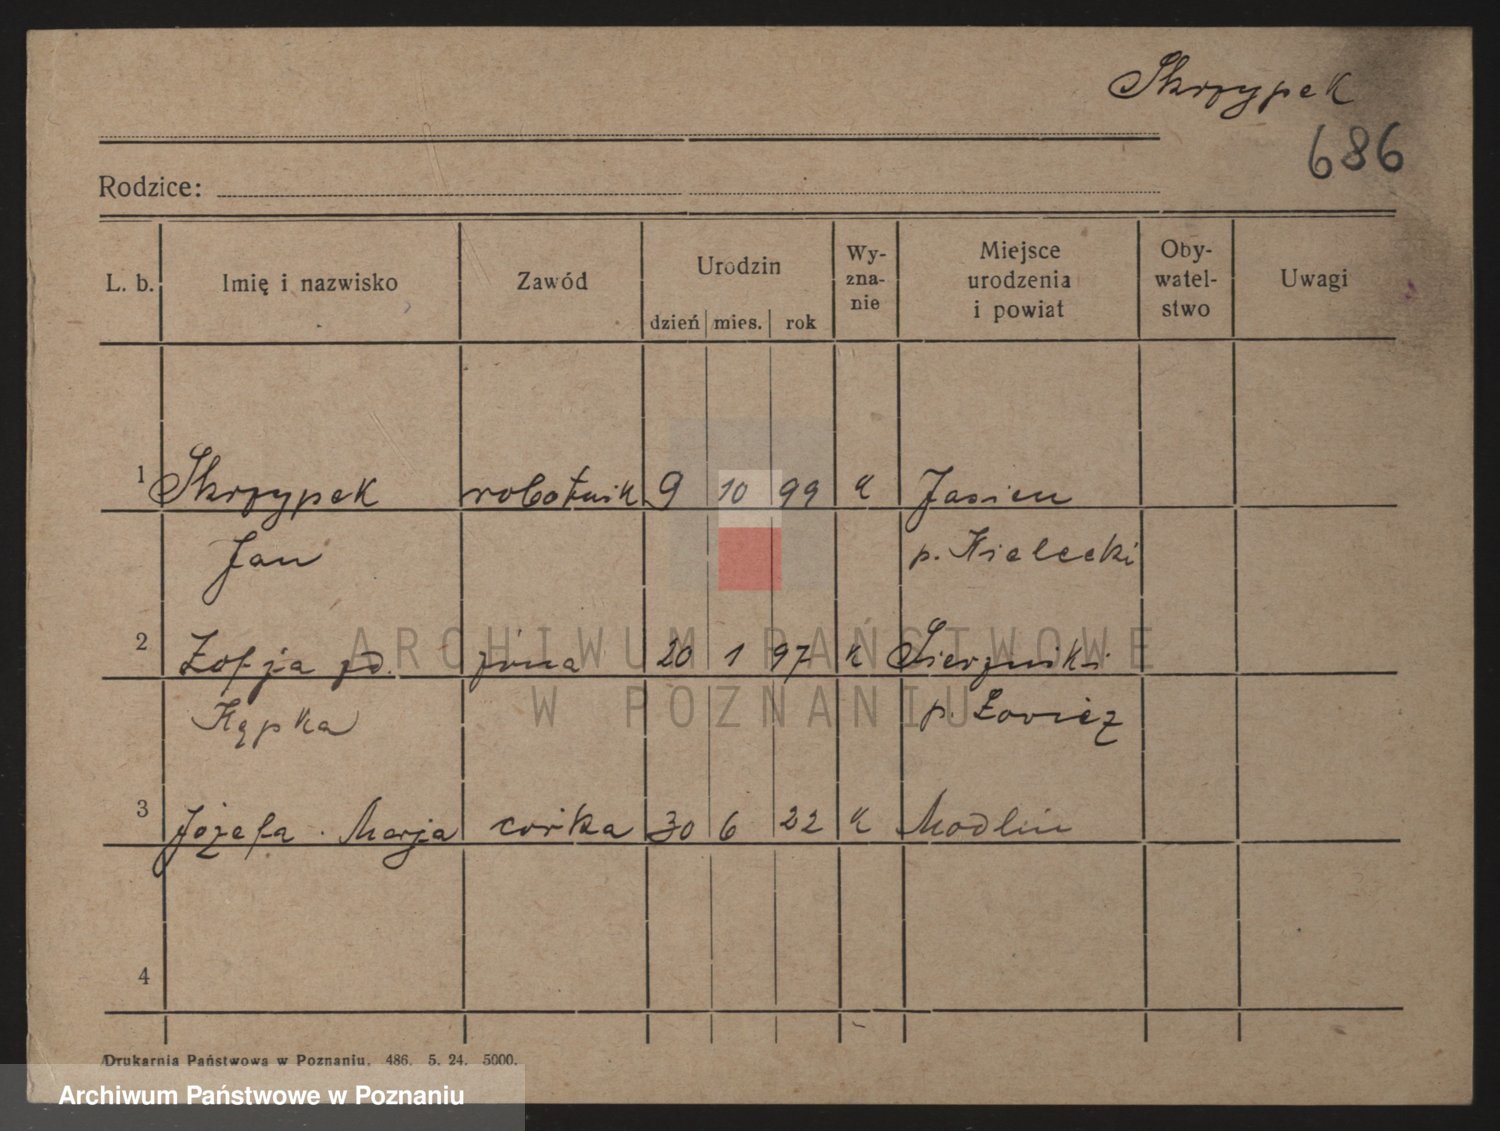 Skrzypek
686
Rodzice:
L. b. Imię i nazwisko Zawód Urodzin dzień mies. rok Wy-zna-nie Miejsce urodzenia i powiat Oby-watel-stwo Uwagi
1 Skrzypek robotnik 9 10 99 k Jasien
Jan p. Kielecki
2 Zofja zd. żona 20 1 97 k Sierzniki
Kępka p. Łowicz
3 Józefa Marja corka 30 6 22 k Modlin
4
ARCHIWUM PAŃSTWOWE
W POZNANIU
Drukarnia Państwowa w Poznaniu. 486. 5. 24. 5000.
Archiwum Państwowe w Poznaniu